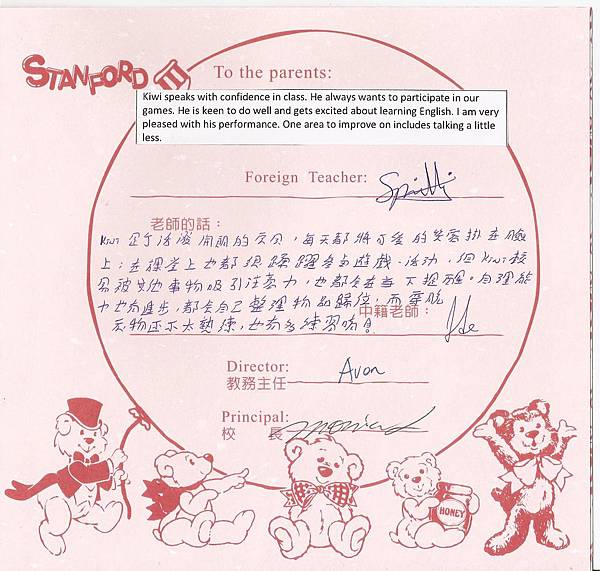 STANFORD
To the parents:
Kiwi speaks with confidence in class. He always wants to participate in our
games. He is keen to do well and gets excited about learning English. I am very
pleased with his performance. One area to improve on includes talking a little
less.
Foreign Teacher:
老師的話：
Kiwi 是個活潑開朗的孩子，每天都將可愛的笑容掛在臉
上；在課堂上也都很踴躍參與遊戲、活動，但Kiwi較
易被其他事物吸引注意力，也都會在當下提醒。自理能
力也有進步，都會自己整理物品歸位，而穿脫
衣物還不太熟練，也有多練習唷！
中籍老師：
Director: Avon
教務主任
Principal:
校 長
HONEY